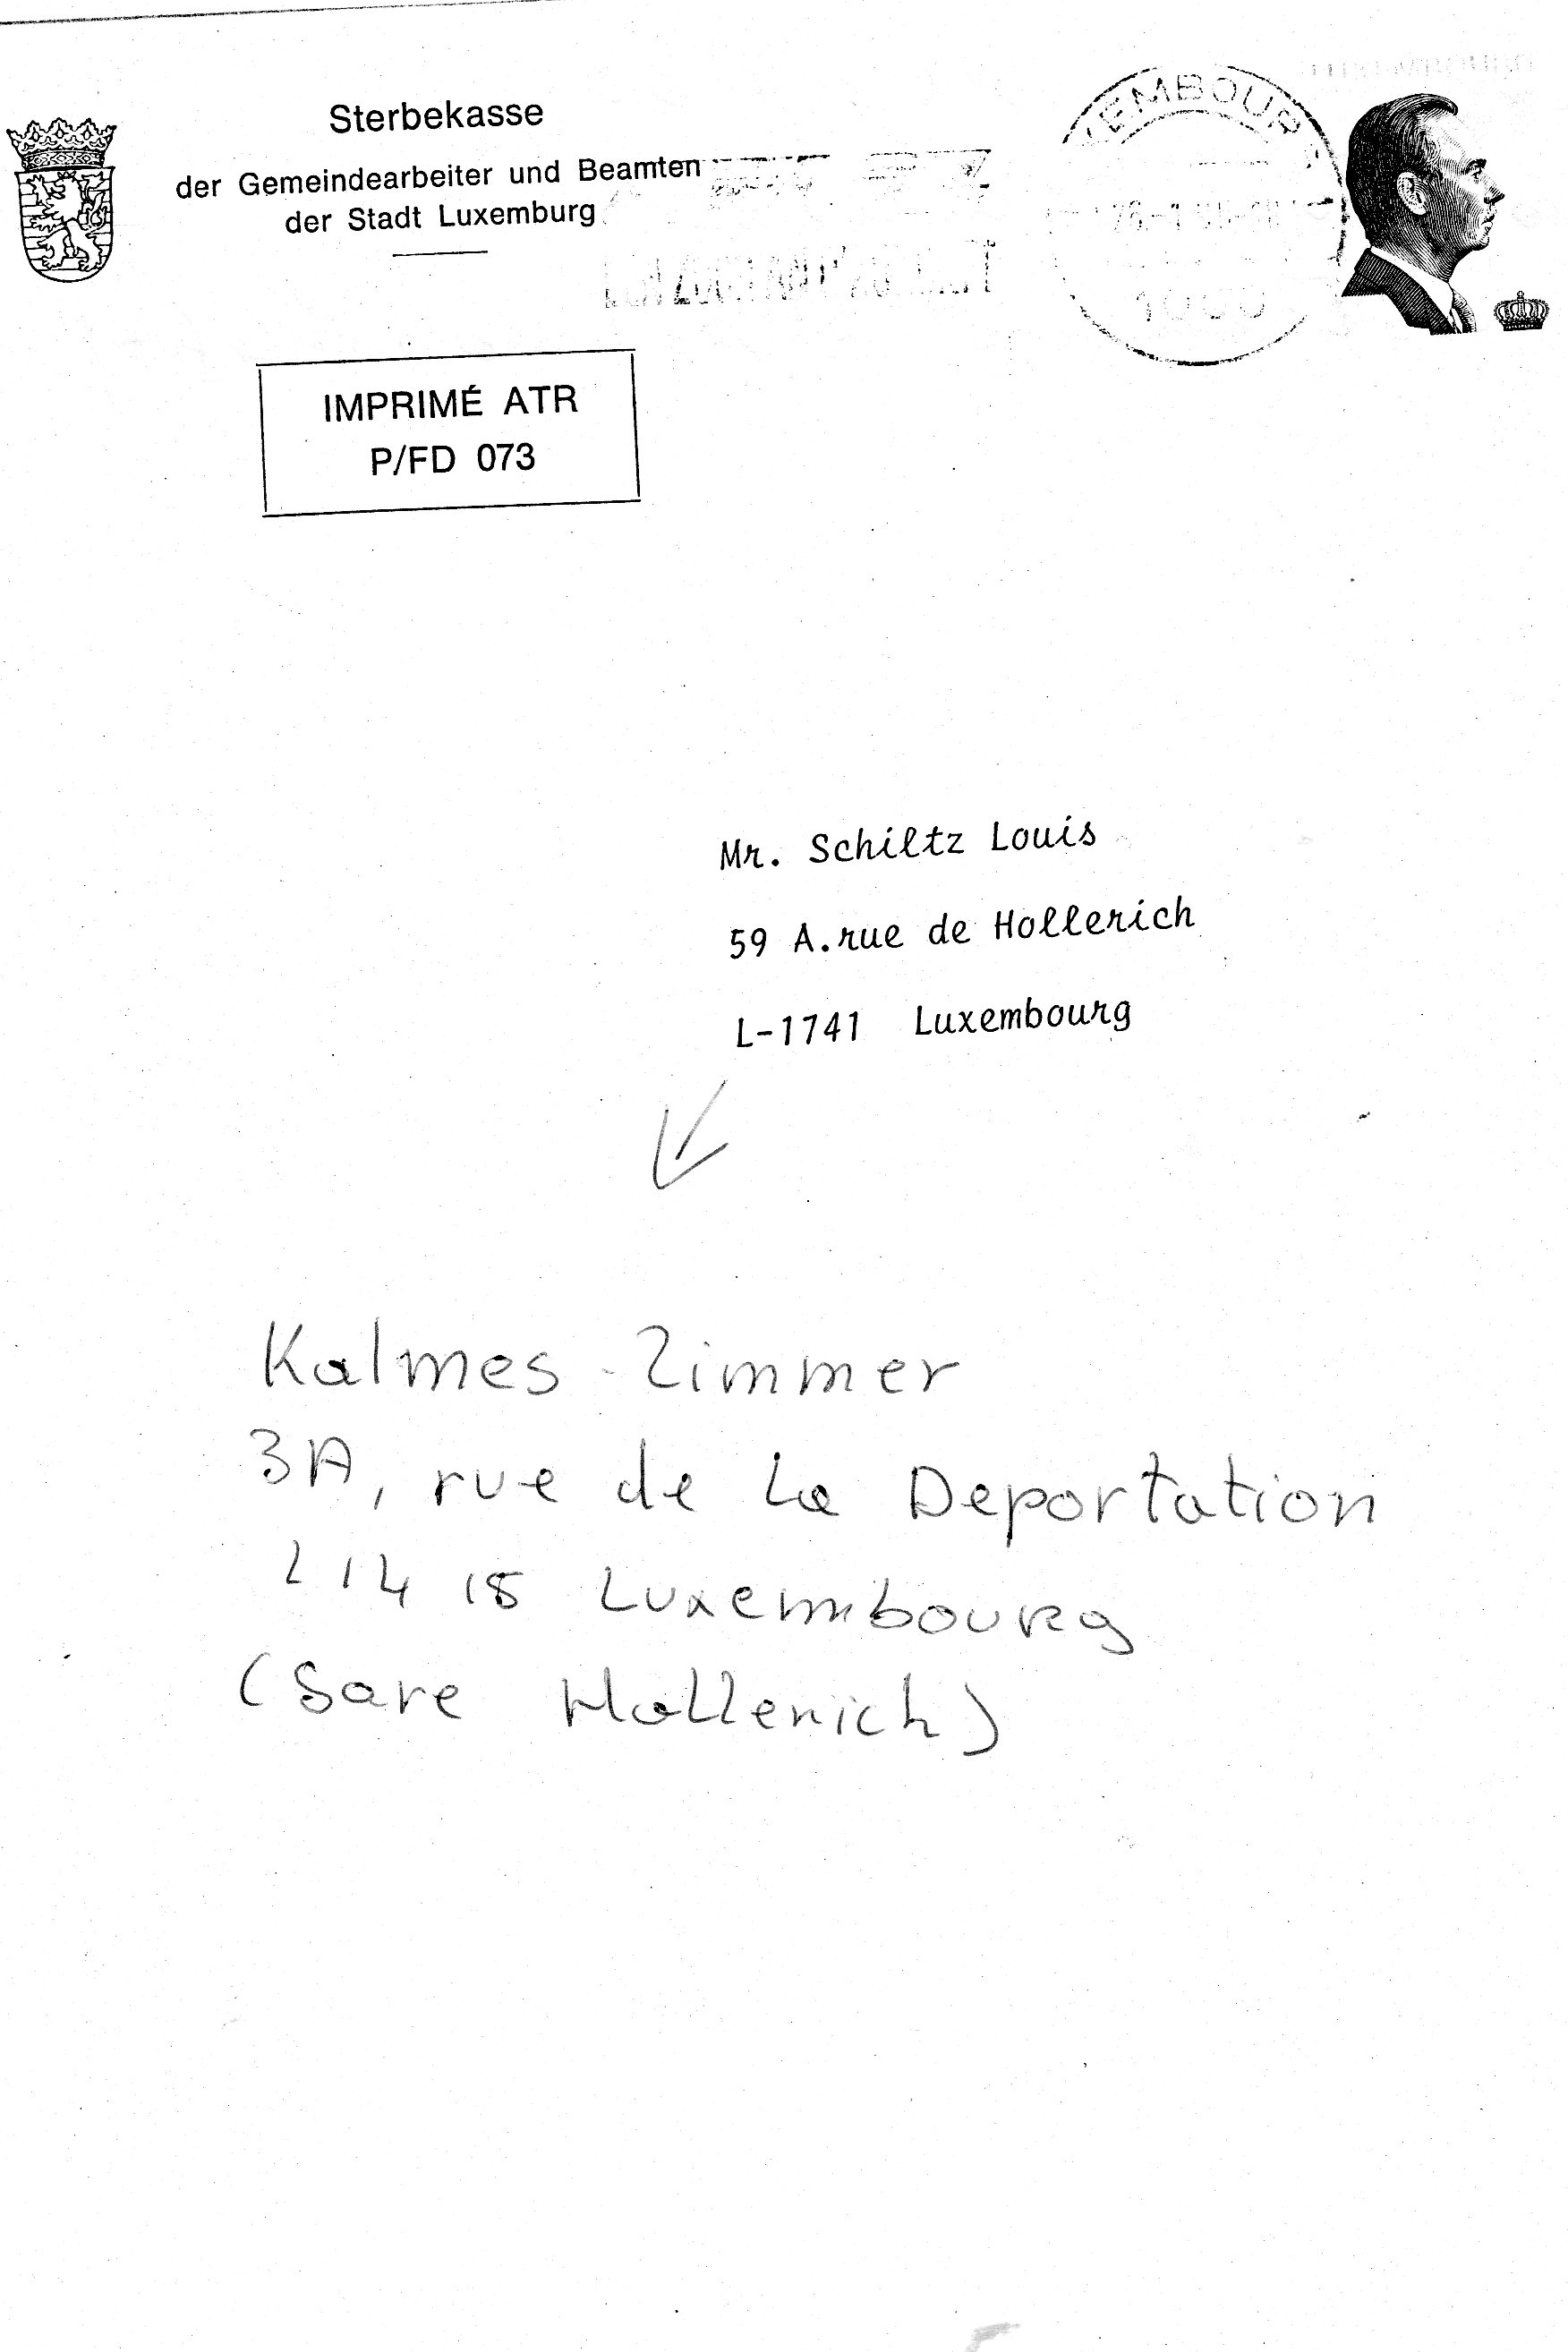 Sterbekasse
der Gemeindearbeiter und Beamten
der Stadt Luxemburg
IMPRIMÉ ATR
P/FD 073
Mr. Schiltz Louis
59 A.rue de Hollerich
L-1741 Luxembourg
Kalmes-Zimmer
3A, rue de La Deportation
L 14 15 Luxembourg
(Gare Hollerich)